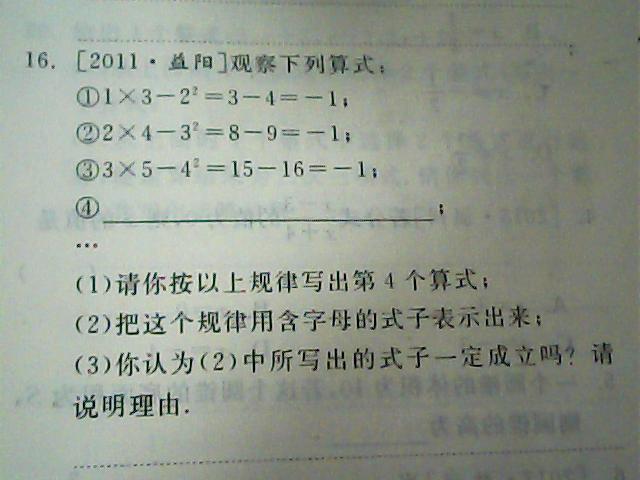 16. [2011·益阳]观察下列算式:
①1×3-2²=3-4=-1;
②2×4-3²=8-9=-1;
③3×5-4²=15-16=-1;
④____________________;
…
(1)请你按以上规律写出第 4 个算式;
(2)把这个规律用含字母的式子表示出来;
(3)你认为(2)中所写出的式子一定成立吗? 请
说明理由.